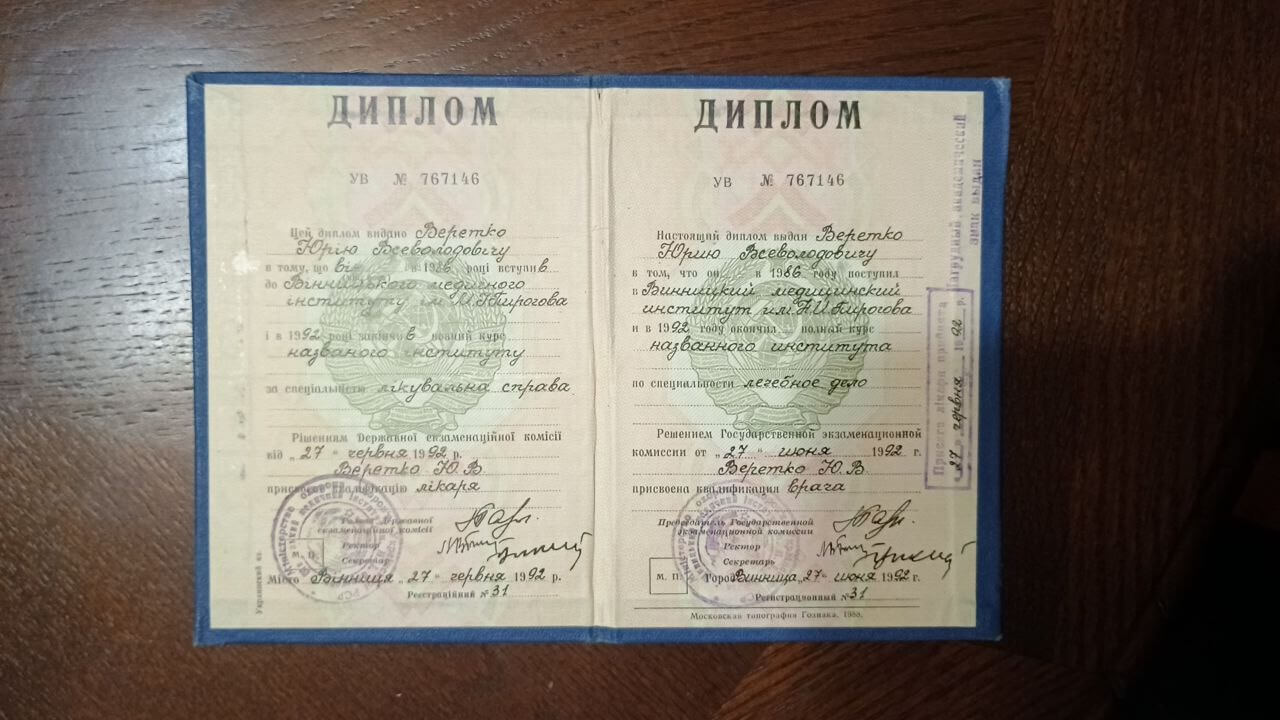 ДИПЛОМ
УВ № 767146
Цей диплом видано Веретко
Юрію Всеволодовичу
в тому, що він в 1986 році вступив
до Вінницького медичного
інституту ім. М. І. Пирогова
і в 1992 році закінчив повний курс
названого інституту
за спеціальністю лікувальна справа
Рішенням Державної екзаменаційної комісії
від „27“ червня 1992 р.
Веретко Ю. В
присвоєна кваліфікацію лікаря
Голова Державної
екзаменаційної комісії
Ректор
М. П.
Секретар
Місто Вінниця „27“ червня 1992 р.
Реєстраційний № 31
Украинский яз.
ДИПЛОМ
УВ № 767146
Настоящий диплом выдан Веретко
Юрию Всеволодовичу
в том, что он в 1986 году поступил
в Винницкий медицинский
институт им. Н. И. Пирогова
и в 1992 году окончил полный курс
названного института
по специальности лечебное дело
Решением Государственной экзаменационной
комиссии от „27“ июня 1992 г.
Веретко Ю. В.
присвоена квалификация врача
Председатель Государственной
экзаменационной комиссии
Ректор
Секретарь
М. П.
Город Винница „27“ июня 1992 г.
Регистрационный № 31
Московская типография Гознака. 1988.
Нагрудный академический
знак выдан
Присяга лікаря прийнята
27 червня 1992 р.